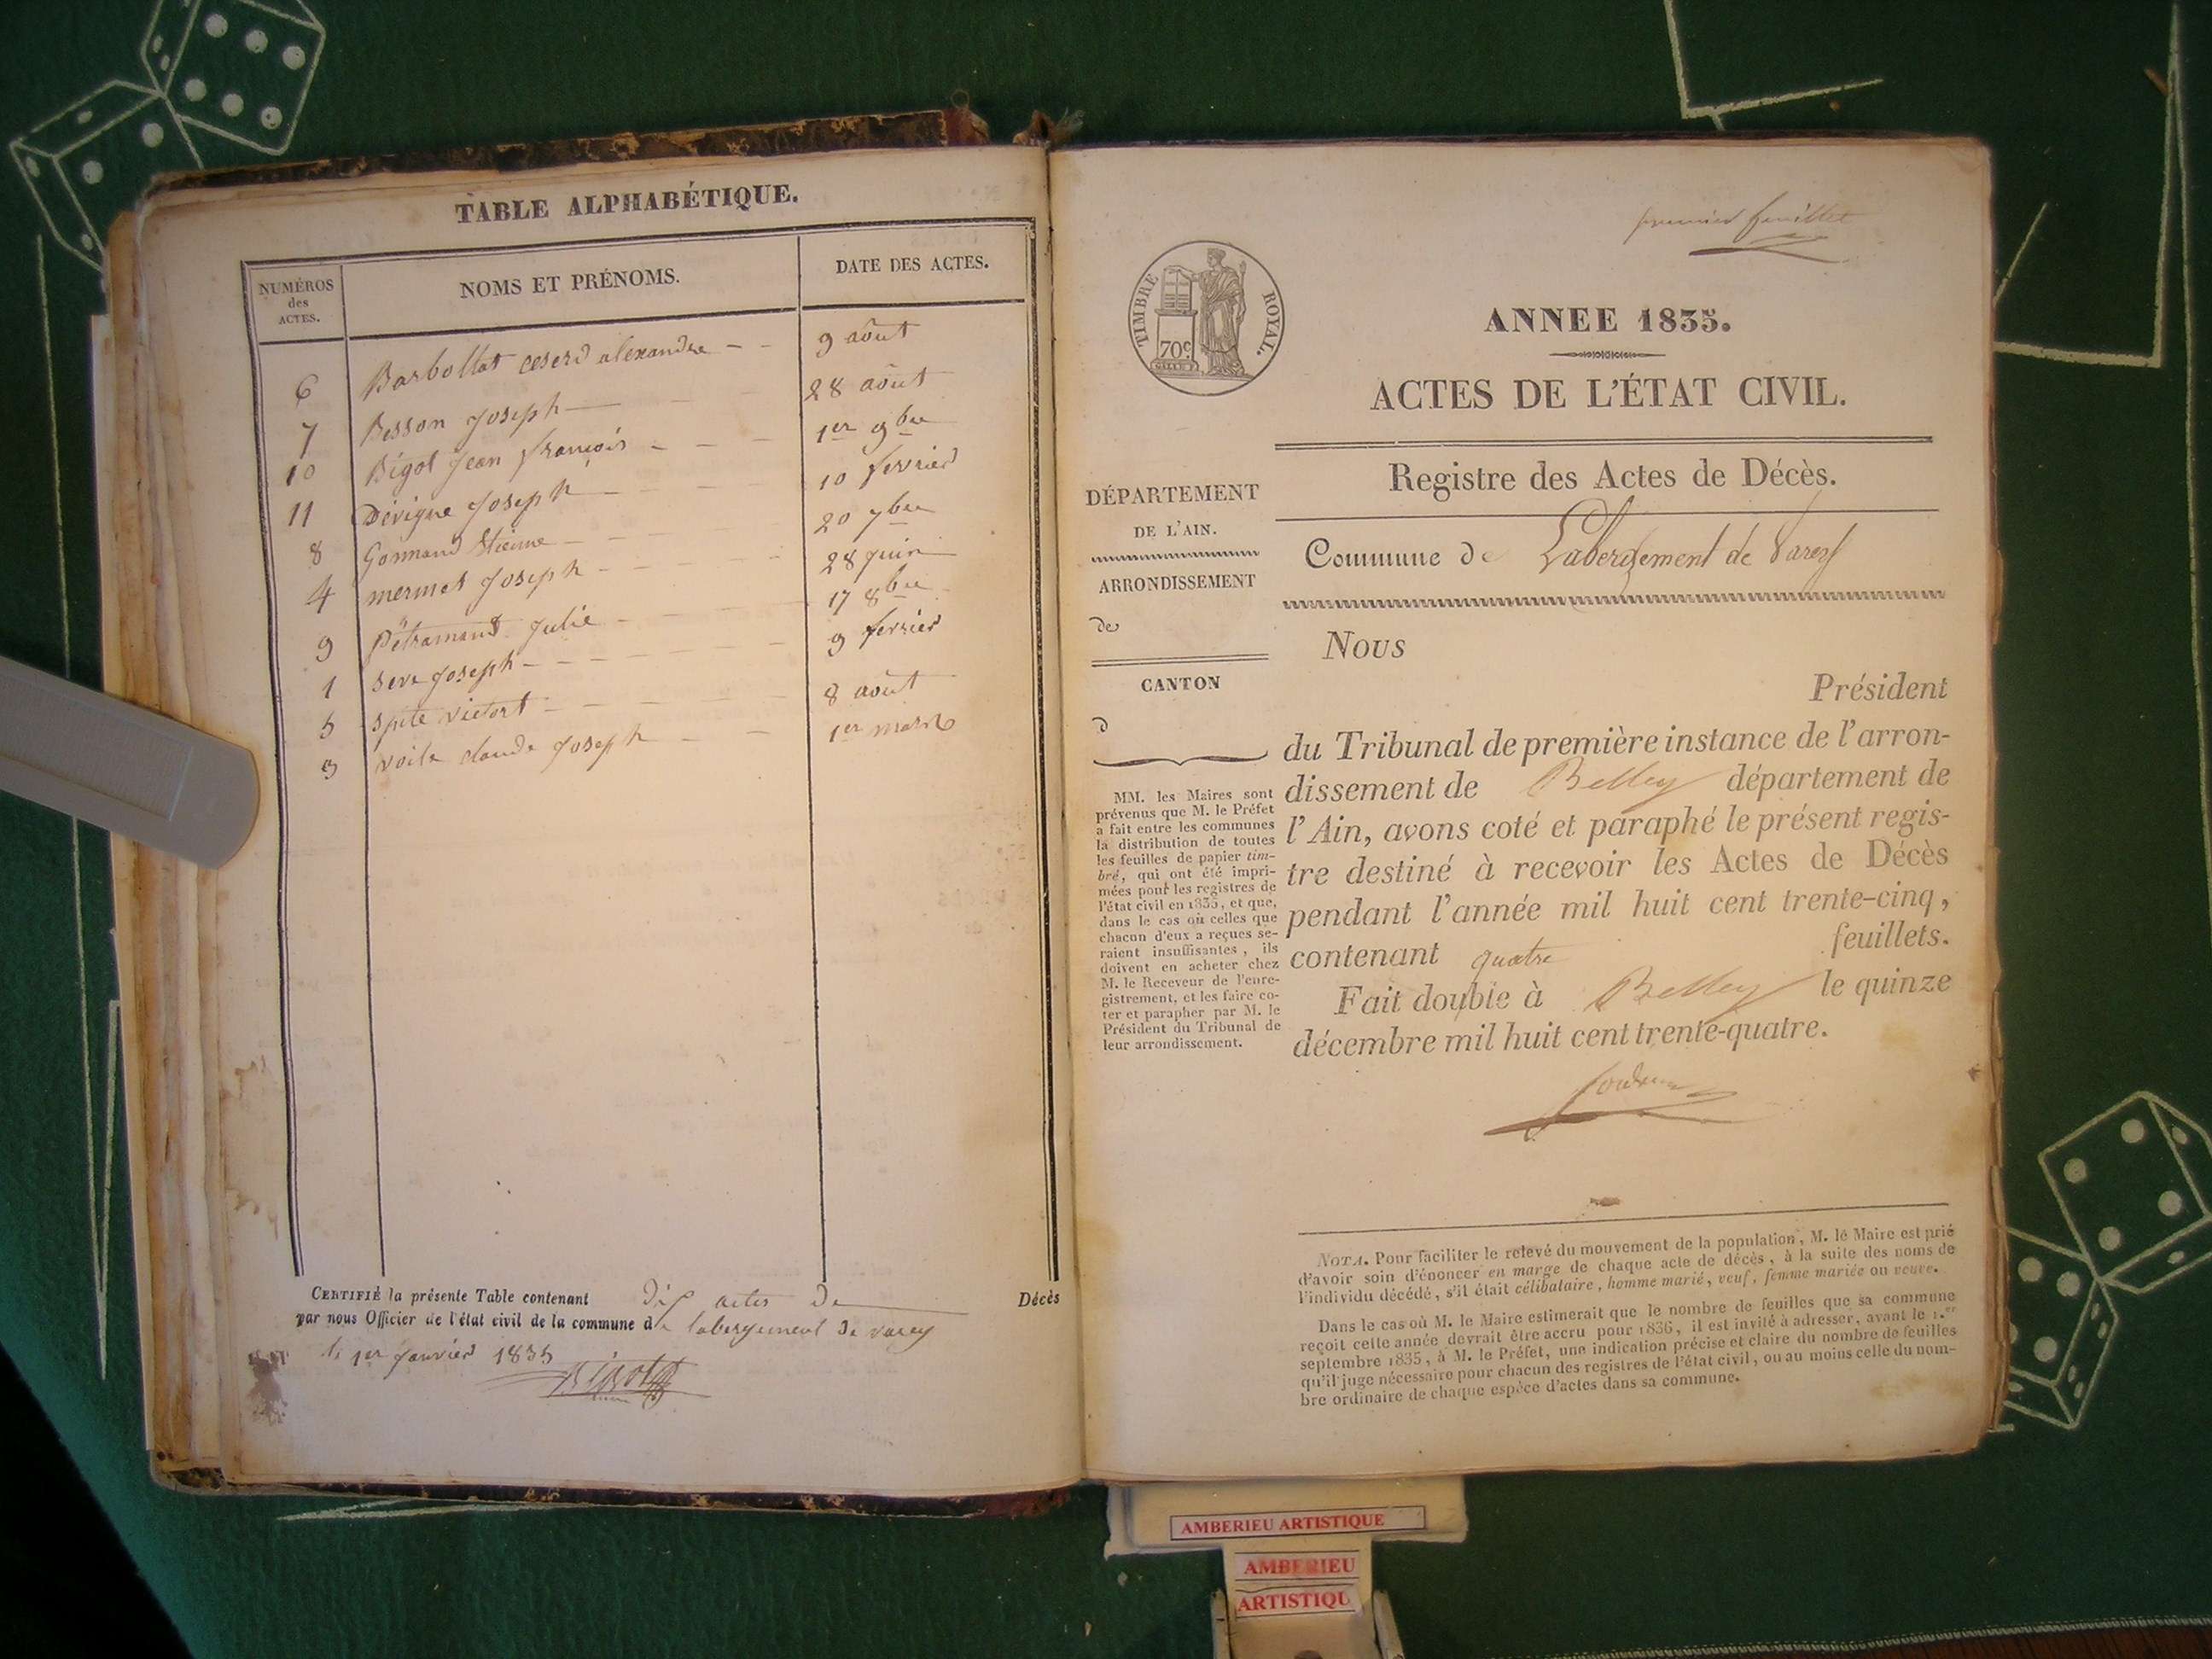 TABLE ALPHABÉTIQUE.
NUMÉROS des ACTES. NOMS ET PRÉNOMS. DATE DES ACTES.
6 Barbollat alexandre 9 août
7 Besson Joseph 28 août
10 Bigot Jean françois 1er 9bre
11 Devigne Joseph 10 fevrier
8 Gormand Etienne 20 7bre
4 mermet Joseph 28 juin
9 Julie 17 8bre
1 Seve Joseph 9 fevrier
5 victort 8 août
voile claude Joseph 1er mars
CERTIFIÉ la présente Table contenant dix actes De Décès
par nous Officier de l'état civil de la commune de labergement de varey
le 1er Janvier 1835
Bigot
premier feuillet
TIMBRE ROYAL.
70c
ANNEE 1835.
ACTES DE L'ÉTAT CIVIL.
Registre des Actes de Décès.
Commune de Labergement de Varey
DÉPARTEMENT
DE L'AIN.
ARRONDISSEMENT
de
CANTON
d
MM. les Maires sont
prévenus que M. le Préfet
a fait entre les communes
la distribution de toutes
les feuilles de papier tim-
bré, qui ont été impri-
mées pour les registres de
l'état civil en 1835, et que,
dans le cas où celles que
chacun d'eux a reçues se-
raient insuffisantes, ils
doivent en acheter chez
M. le Receveur de l'enre-
gistrement, et les faire co-
ter et parapher par M. le
Président du Tribunal de
leur arrondissement.
Nous
Président
du Tribunal de première instance de l'arron-
dissement de Belley département de
l'Ain, avons coté et paraphé le présent regis-
tre destiné à recevoir les Actes de Décès
pendant l'année mil huit cent trente-cinq,
contenant quatre feuillets.
Fait double à Belley le quinze
décembre mil huit cent trente-quatre.
NOTA. Pour faciliter le relevé du mouvement de la population, M. le Maire est prié
d'avoir soin d'énoncer en marge de chaque acte de décès, à la suite des noms de
l'individu décédé, s'il était célibataire, homme marié, veuf, femme mariée ou veuve.
Dans le cas où M. le Maire estimerait que le nombre de feuilles que sa commune
reçoit cette année devrait être accru pour 1836, il est invité à adresser, avant le 1.er
septembre 1835, à M. le Préfet, une indication précise et claire du nombre de feuilles
qu'il juge nécessaire pour chacun des registres de l'état civil, ou au moins celle du nom-
bre ordinaire de chaque espèce d'actes dans sa commune.
AMBERIEU ARTISTIQUE
AMBERIEU
ARTISTIQU